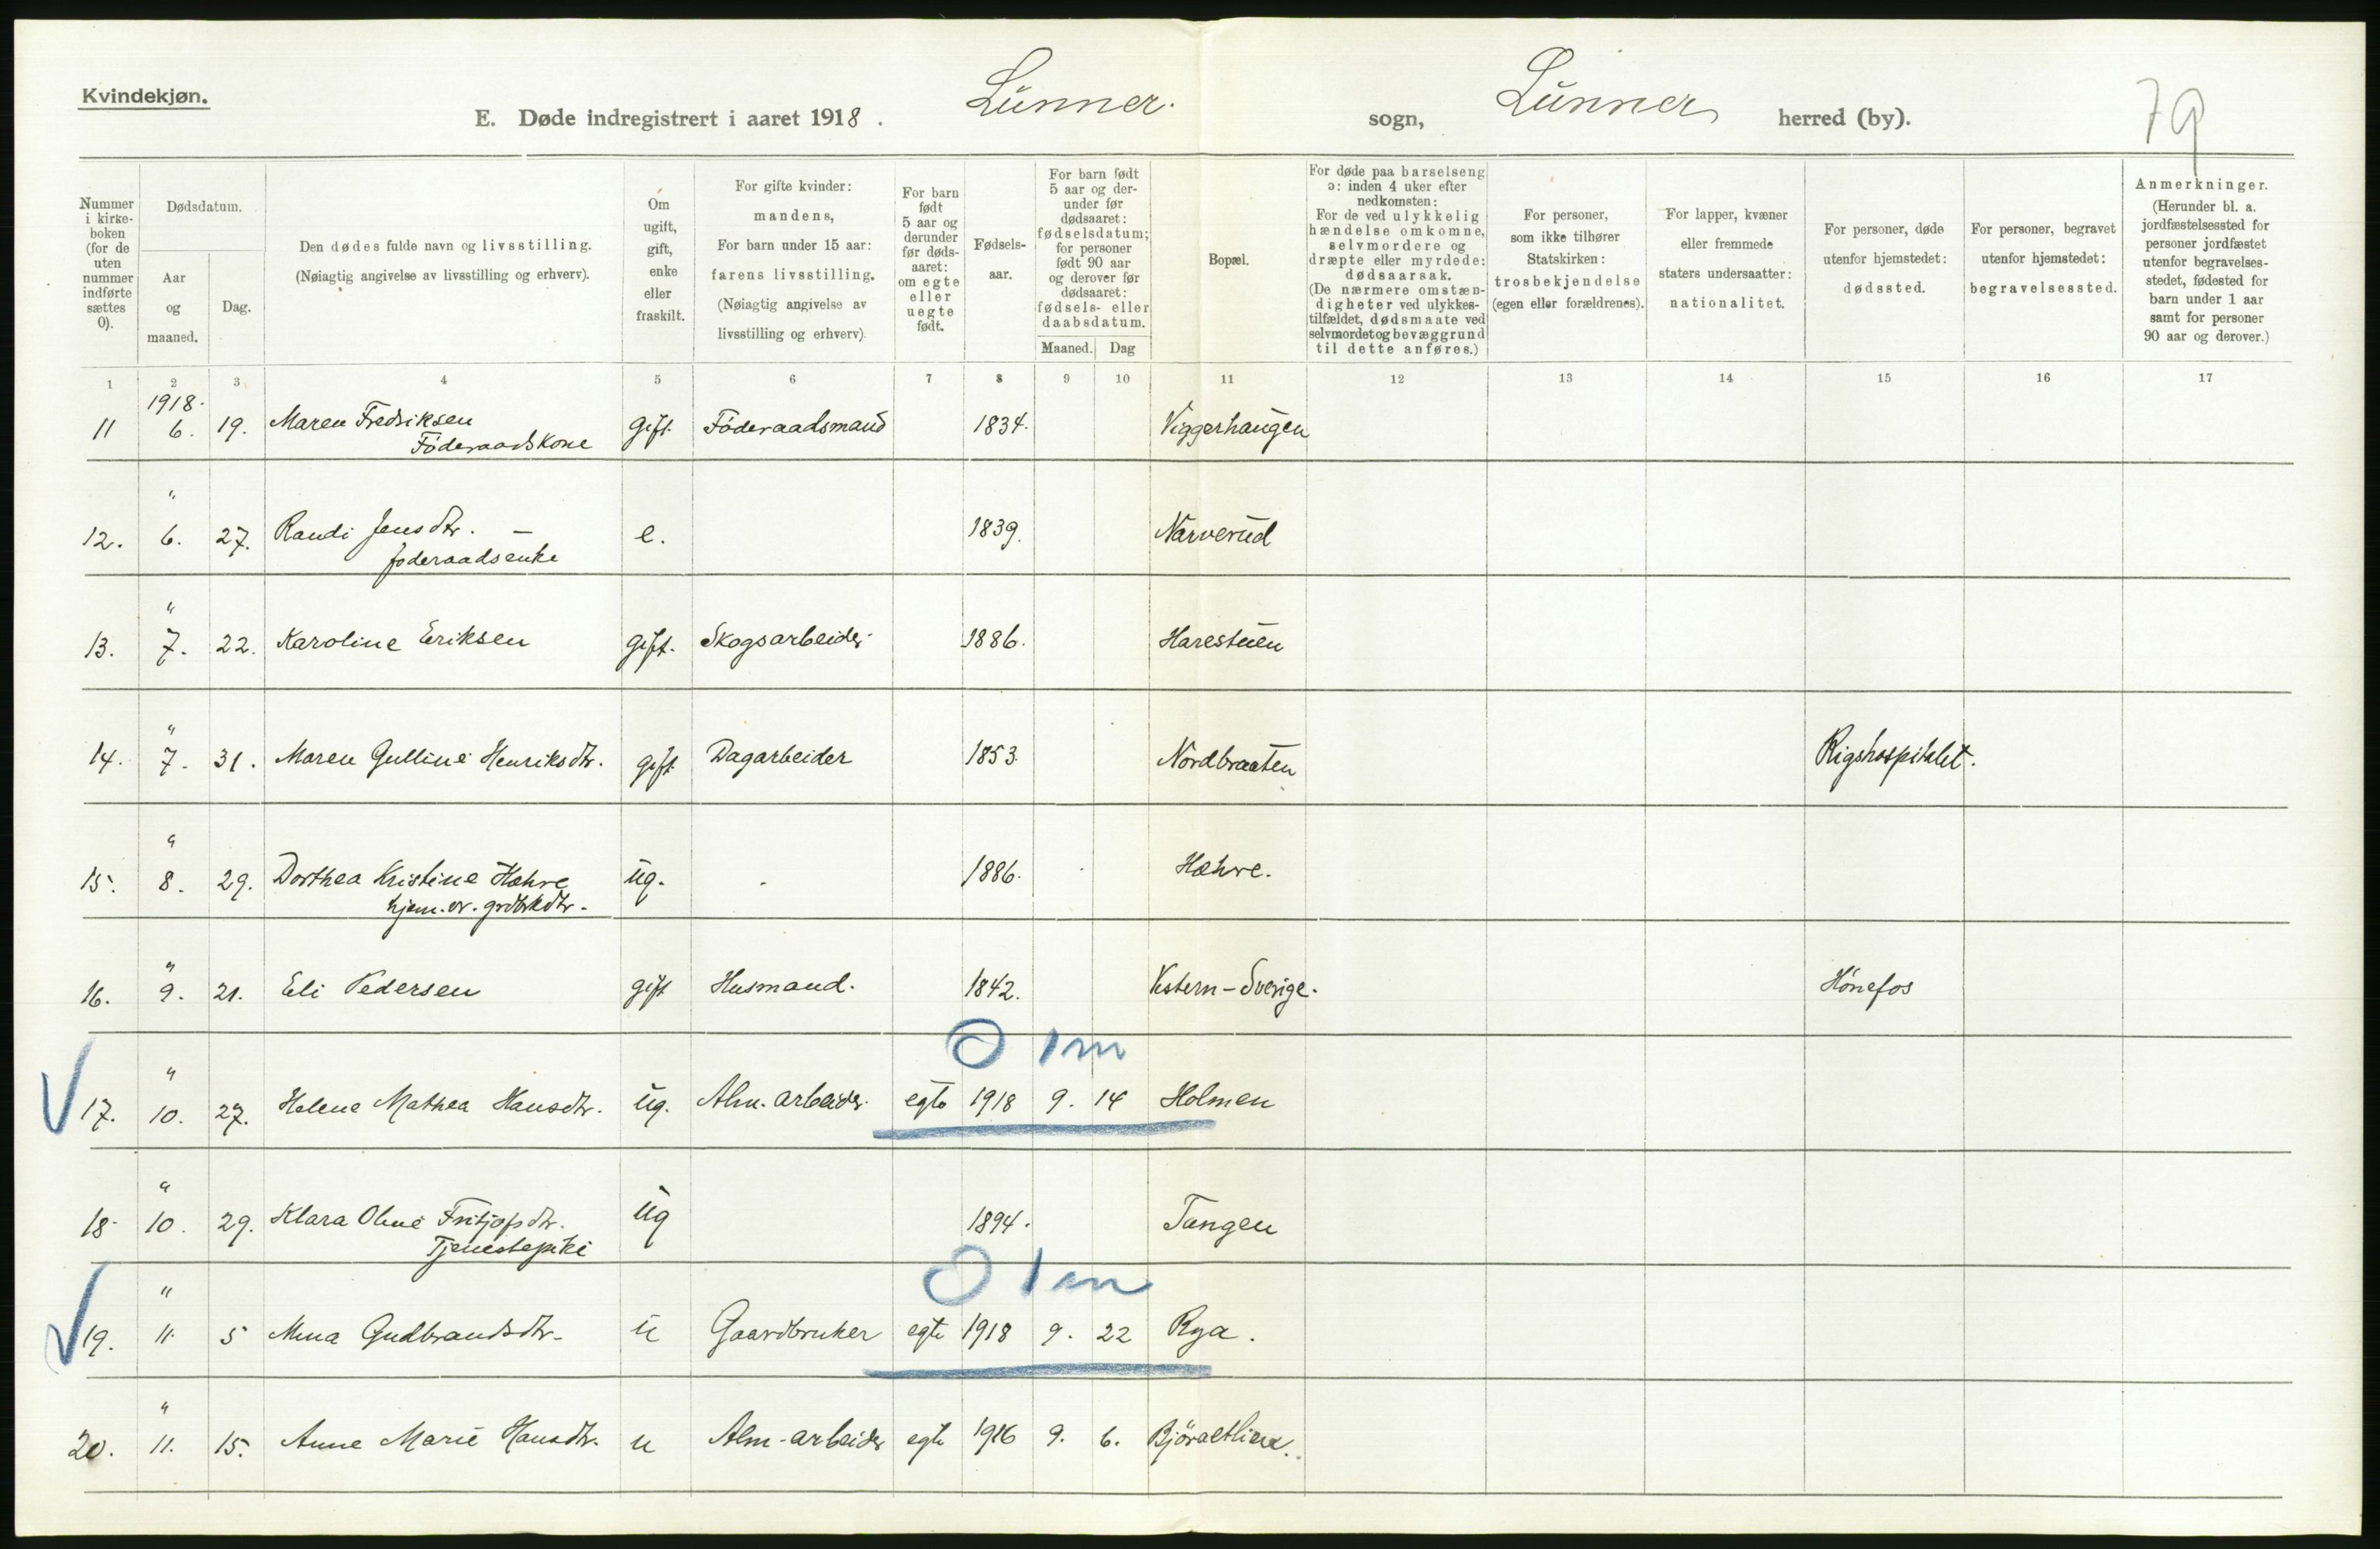 Kvindekjøn.
E. Døde indregistrert i aaret 1918.
Lunner.
sogn,
Lunner
herred (by).
79
Nummer
i kirke-
boken
(for de
uten
nummer
indførte
sættes
0).
Dødsdatum.
Aar
og
maaned.
Dag.
Den dødes fulde navn og livsstilling.
(Nøiagtig angivelse av livsstilling og erhverv).
Om
ugift,
gift,
enke
eller
fraskilt.
For gifte kvinder:
mandens,
For barn under 15 aar:
farens livsstilling.
(Nøiagtig angivelse av
livsstilling og erhverv).
For barn
født
5 aar og
derunder
før døds-
aaret:
om egte
eller
uegte
født.
Fødsels-
aar.
For barn født
5 aar og der-
under før
dødsaaret:
fødselsdatum;
for personer
født 90 aar
og derover før
dødsaaret:
fødsels- eller
daabsdatum.
Maaned. Dag
Bopæl.
For døde paa barselseng
ɔ: inden 4 uker efter
nedkomsten:
For de ved ulykkelig
hændelse omkomne,
selvmordere og
dræpte eller myrdede:
dødsaarsak.
(De nærmere omstæn-
digheter ved ulykkes-
tilfældet, dødsmaate ved
selvmordet og bevæggrund
til dette anføres.)
For personer,
som ikke tilhører
Statskirken:
trosbekjendelse
(egen eller forældrenes).
For lapper, kvæner
eller fremmede
staters undersaatter:
nationalitet.
For personer, døde
utenfor hjemstedet:
dødssted.
For personer, begravet
utenfor hjemstedet:
begravelsessted.
Anmerkninger.
(Herunder bl. a.
jordfæstelsessted for
personer jordfæstet
utenfor begravelses-
stedet, fødested for
barn under 1 aar
samt for personer
90 aar og derover.)
1 2 3 4 5 6 7 8 9 10 11 12 13 14 15 16 17
1918.
11 6. 19. Maren Fredriksen gift. Föderaadsmand 1834. Viggerhaugen
Föderaadskone
"
12. 6. 27. Randi Jensdtr. — e. 1839. Narverud
foderaadsenke
"
13. 7. 22. Karoline Eriksen gift. Skogsarbeider 1886. Harestuen
"
14. 7. 31. Maren Gulline Henriksdtr. gift Dagarbeider 1853. Nordbraaten Rigshospitalet.
"
15. 8. 29. Dorthea Kristine Hæhre ug. 1886. Hæhre.
hjem. v. grdbrkdtr.
"
16. 9. 21. Eli Pedersen gift Husmand. 1842. Vestern-Sverige. Hönefos
0 1m
"
17. 10. 27. Helene Mathea Hansdtr. ug. Alm. arbeider egte 1918 9. 14 Holmen
"
18. 10. 29. Klara Oline Fritjofsdtr. ug 1894. Tangen
Tjenestepike
0 1m
"
19. 11. 5 Mina Gudbrandsdtr. u Gaardbruker egte 1918 9. 22 Rya.
"
20. 11. 15. Anne Marie Hansdtr. u Alm-arbeider egte 1916 9. 6.